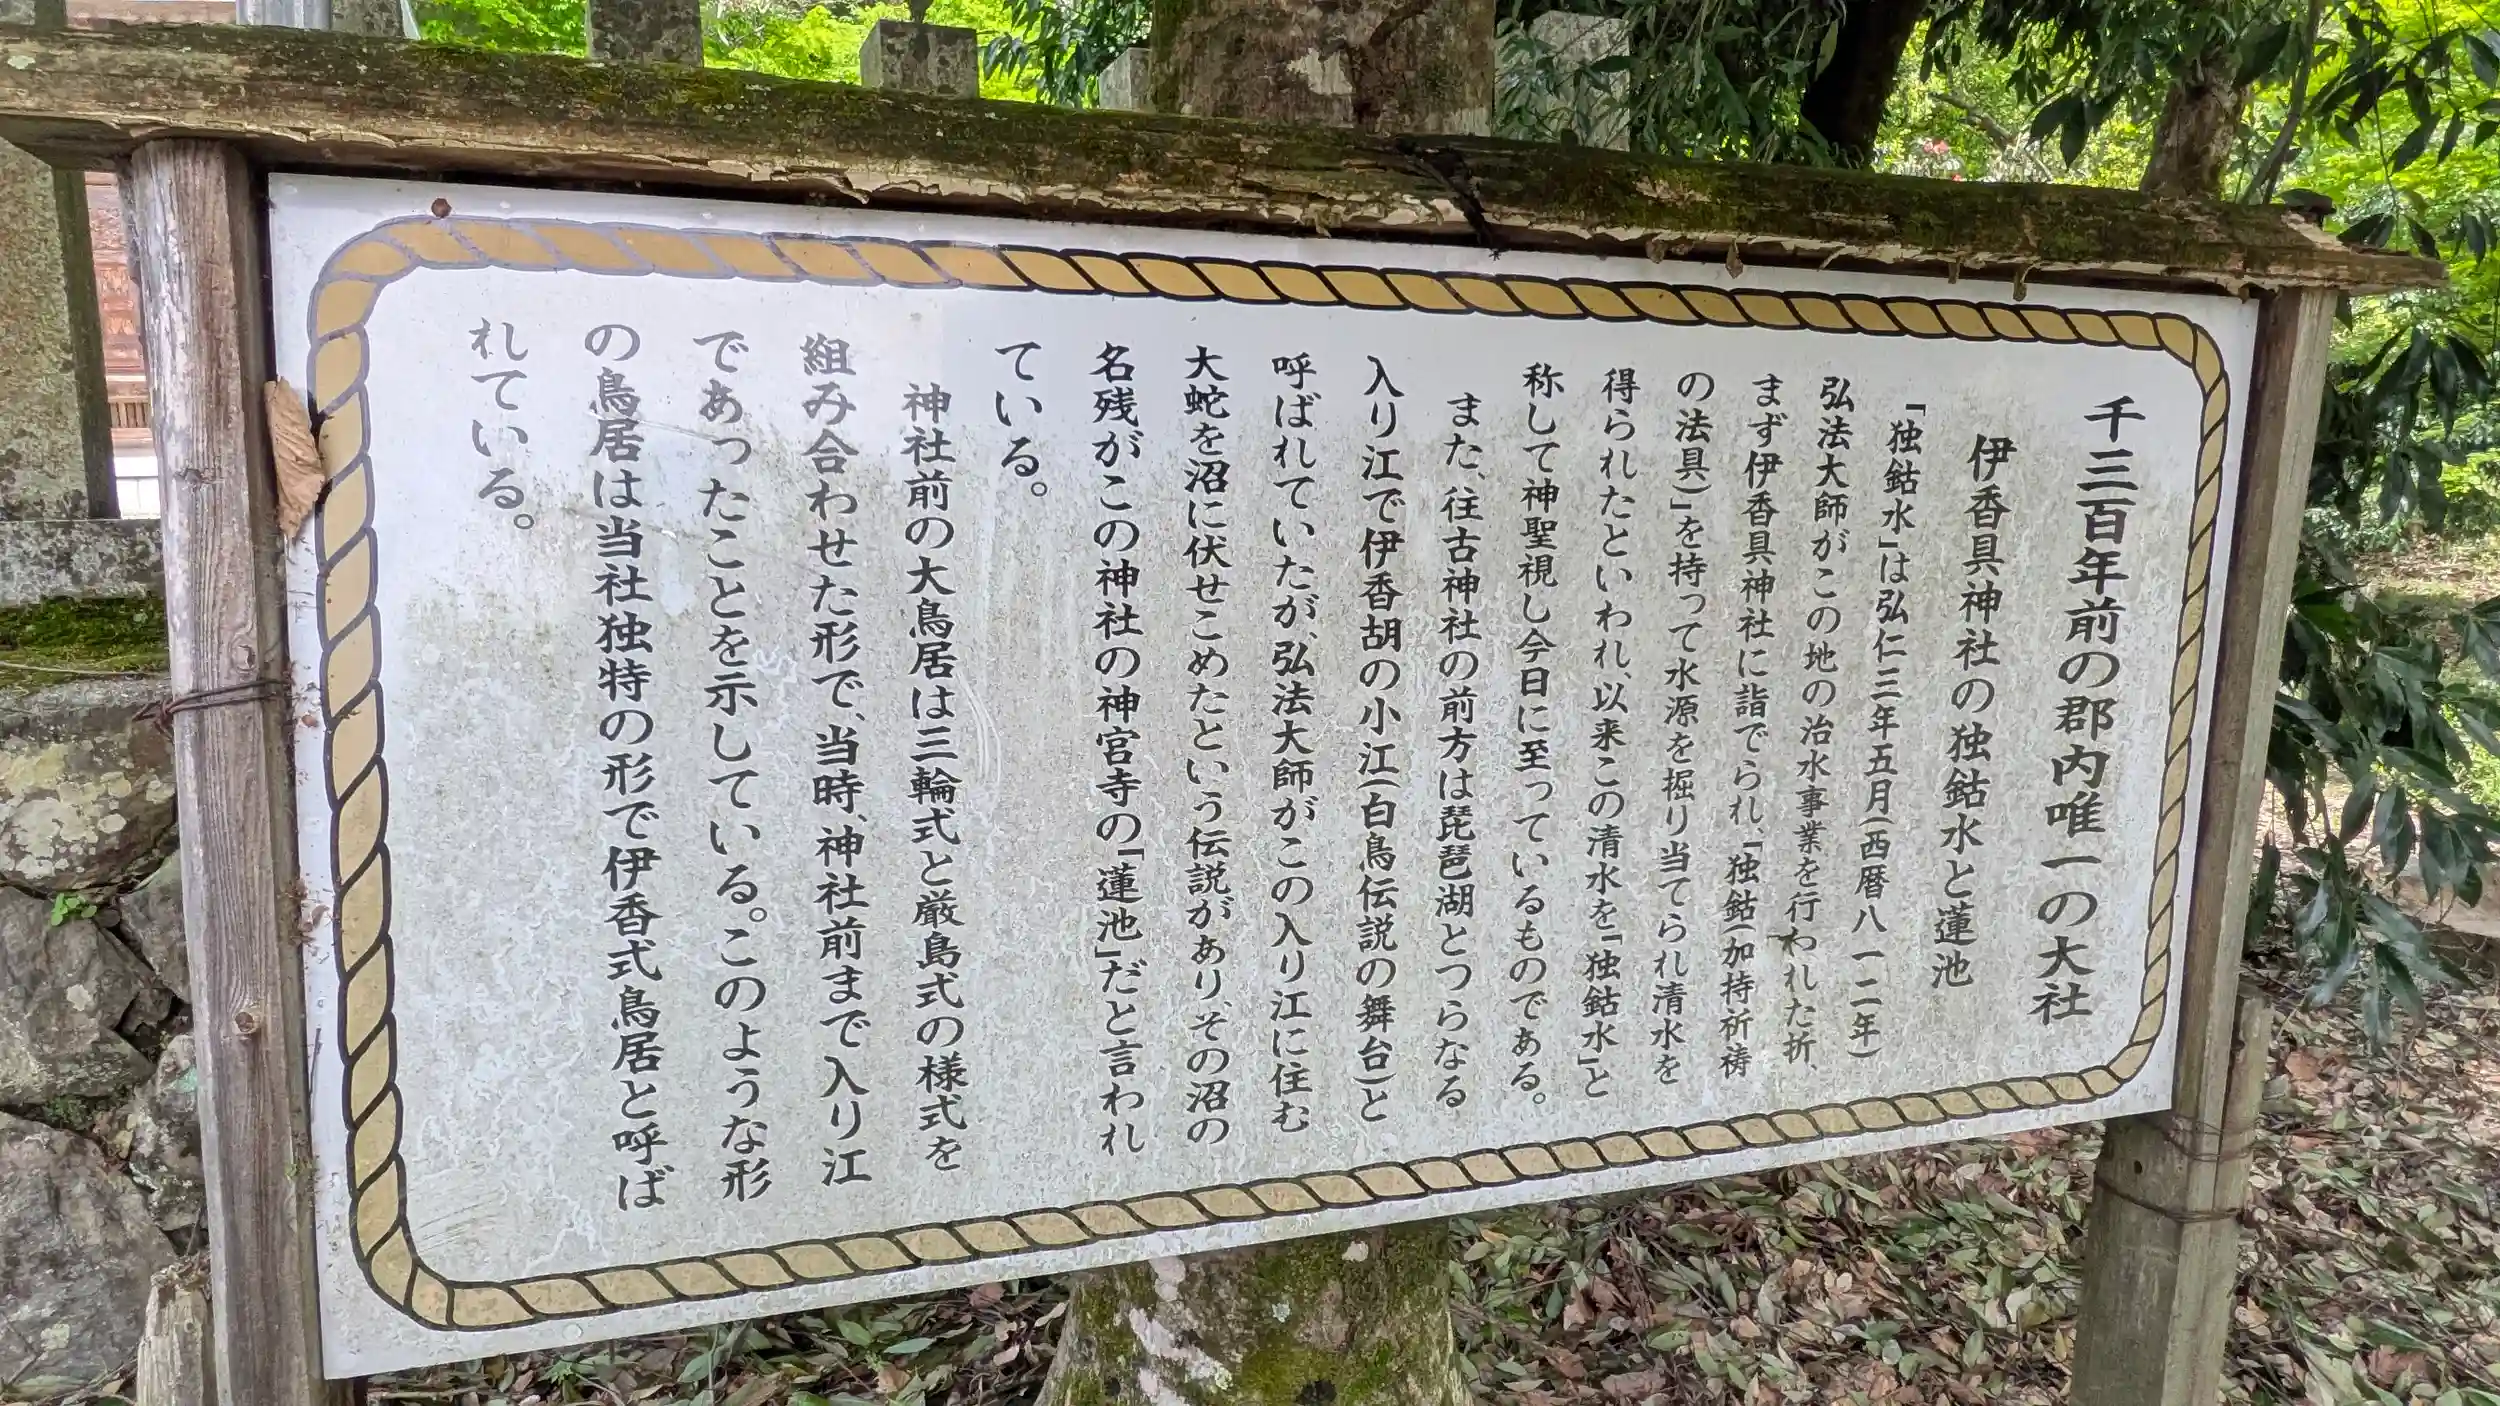 千三百年前の郡内唯一の大社
伊香具神社の独鈷水と蓮池
「独鈷水」は弘仁三年五月(西暦八一二年)
弘法大師がこの地の治水事業を行われた折、
まず伊香具神社に詣でられ、「独鈷(加持祈祷
の法具)」を持って水源を掘り当てられ清水を
得られたといわれ、以来この清水を「独鈷水」と
称して神聖視し今日に至っているものである。
また、往古神社の前方は琵琶湖とつらなる
入り江で伊香胡の小江(白鳥伝説の舞台)と
呼ばれていたが、弘法大師がこの入り江に住む
大蛇を沼に伏せこめたという伝説があり、その沼の
名残がこの神社の神宮寺の「蓮池」だと言われ
ている。
神社前の大鳥居は三輪式と厳島式の様式を
組み合わせた形で、当時、神社前まで入り江
であったことを示している。このような形
の鳥居は当社独特の形で伊香式鳥居と呼ば
れている。